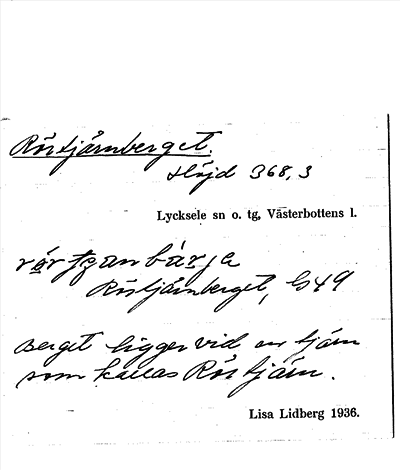 Rörtjärnberget.
Höjd 368,3
Lycksele sn o. tg, Västerbottens l.
Rörtjärnberget, G49
Berget ligger vid en tjärn
som kallas Rörtjärn.
Lisa Lidberg 1936.